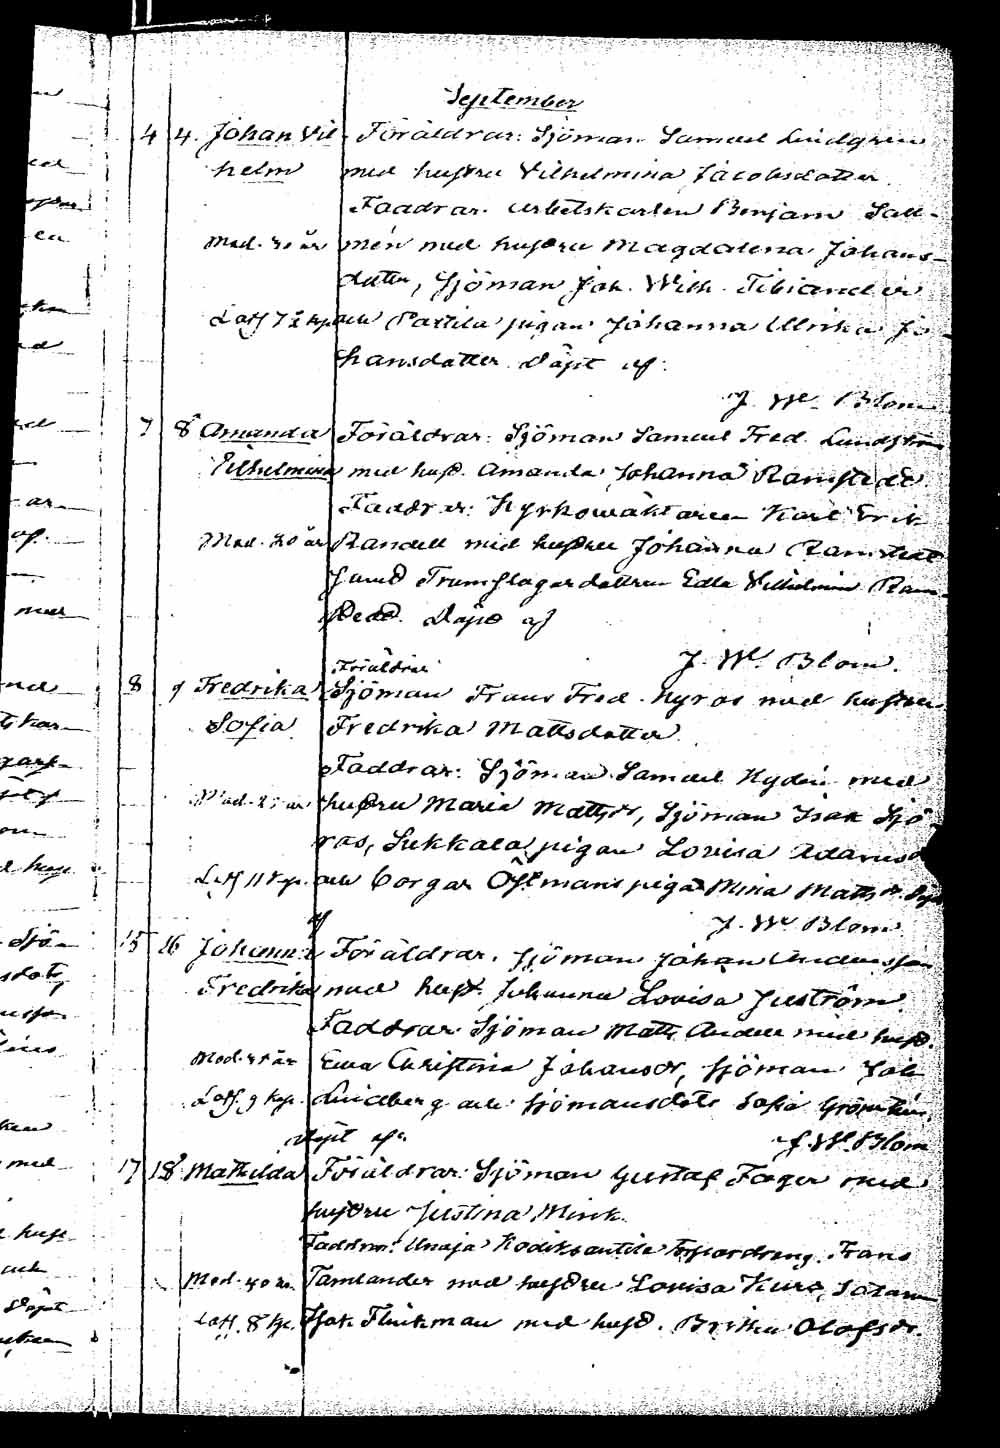 September
4 4. Johan Vil- Föräldrar: Sjöman Samuel Lindgren
helm med hustru Vilhelmina Jacobsdotter
Faddrar. arbetskarlen Benjam Sall-
Mod. år mén med hustru Magdalena Johans-
dotter, Sjöman Joh. Wilh. Tibiander
Lösf 7½ kp. och Partila pigan Johanna Ulrika Jo-
hansdotter. Döpt af:
J. W. Blom
7 8 Amanda Föräldrar: Sjöman Samuel Fred. Lundström
Vilhelmina med hust. Amanda Johanna Ramstedt
Faddrar: Kyrkowäktaren Karl Erik
Mod. 20 år Randell med hustru Johanna Ramstedt
samt Trumslagardottren Edla Vilhelmina Ram-
stedt. Döpt af
J. W. Blom.
Föräldrar
8 9 Fredrika Sjöman Frans Fred. Nyros med hustru
Sofia Fredrika Mattsdotter
Faddrar: Sjöman Samuel Nydén med
Mod. år hustru Maria Mattsdr, Sjöman Isak Sjö-
ros, Sukkala pigan Lovisa Adamsd
Lösf 11 kp. och Borgar Östmans piga Mina Mattsdr. Döpt
af J. W. Blom
15 16 Johanna Föräldrar. Sjöman Johan Andersson
Fredrika med hust. Johanna Lovisa Juström
Faddrar: Sjöman Matts Andell med hust.
Mod. år Ewa Christina Johansdr, Sjöman Joh
Lösf. 9 kp. Lindberg och Sjömansdott Sofia
Döpt af: J. W. Blom
17 18 Mathilda Föräldrar: Sjöman Gustaf Fager med
hustru Justina Mink.
Faddrar: Unaja Frans
Mod. 40 år. Tamlander med hustru Lovisa
Lösf. 8 kp. Isak Flinkman med hust. Brita Olofsdr.